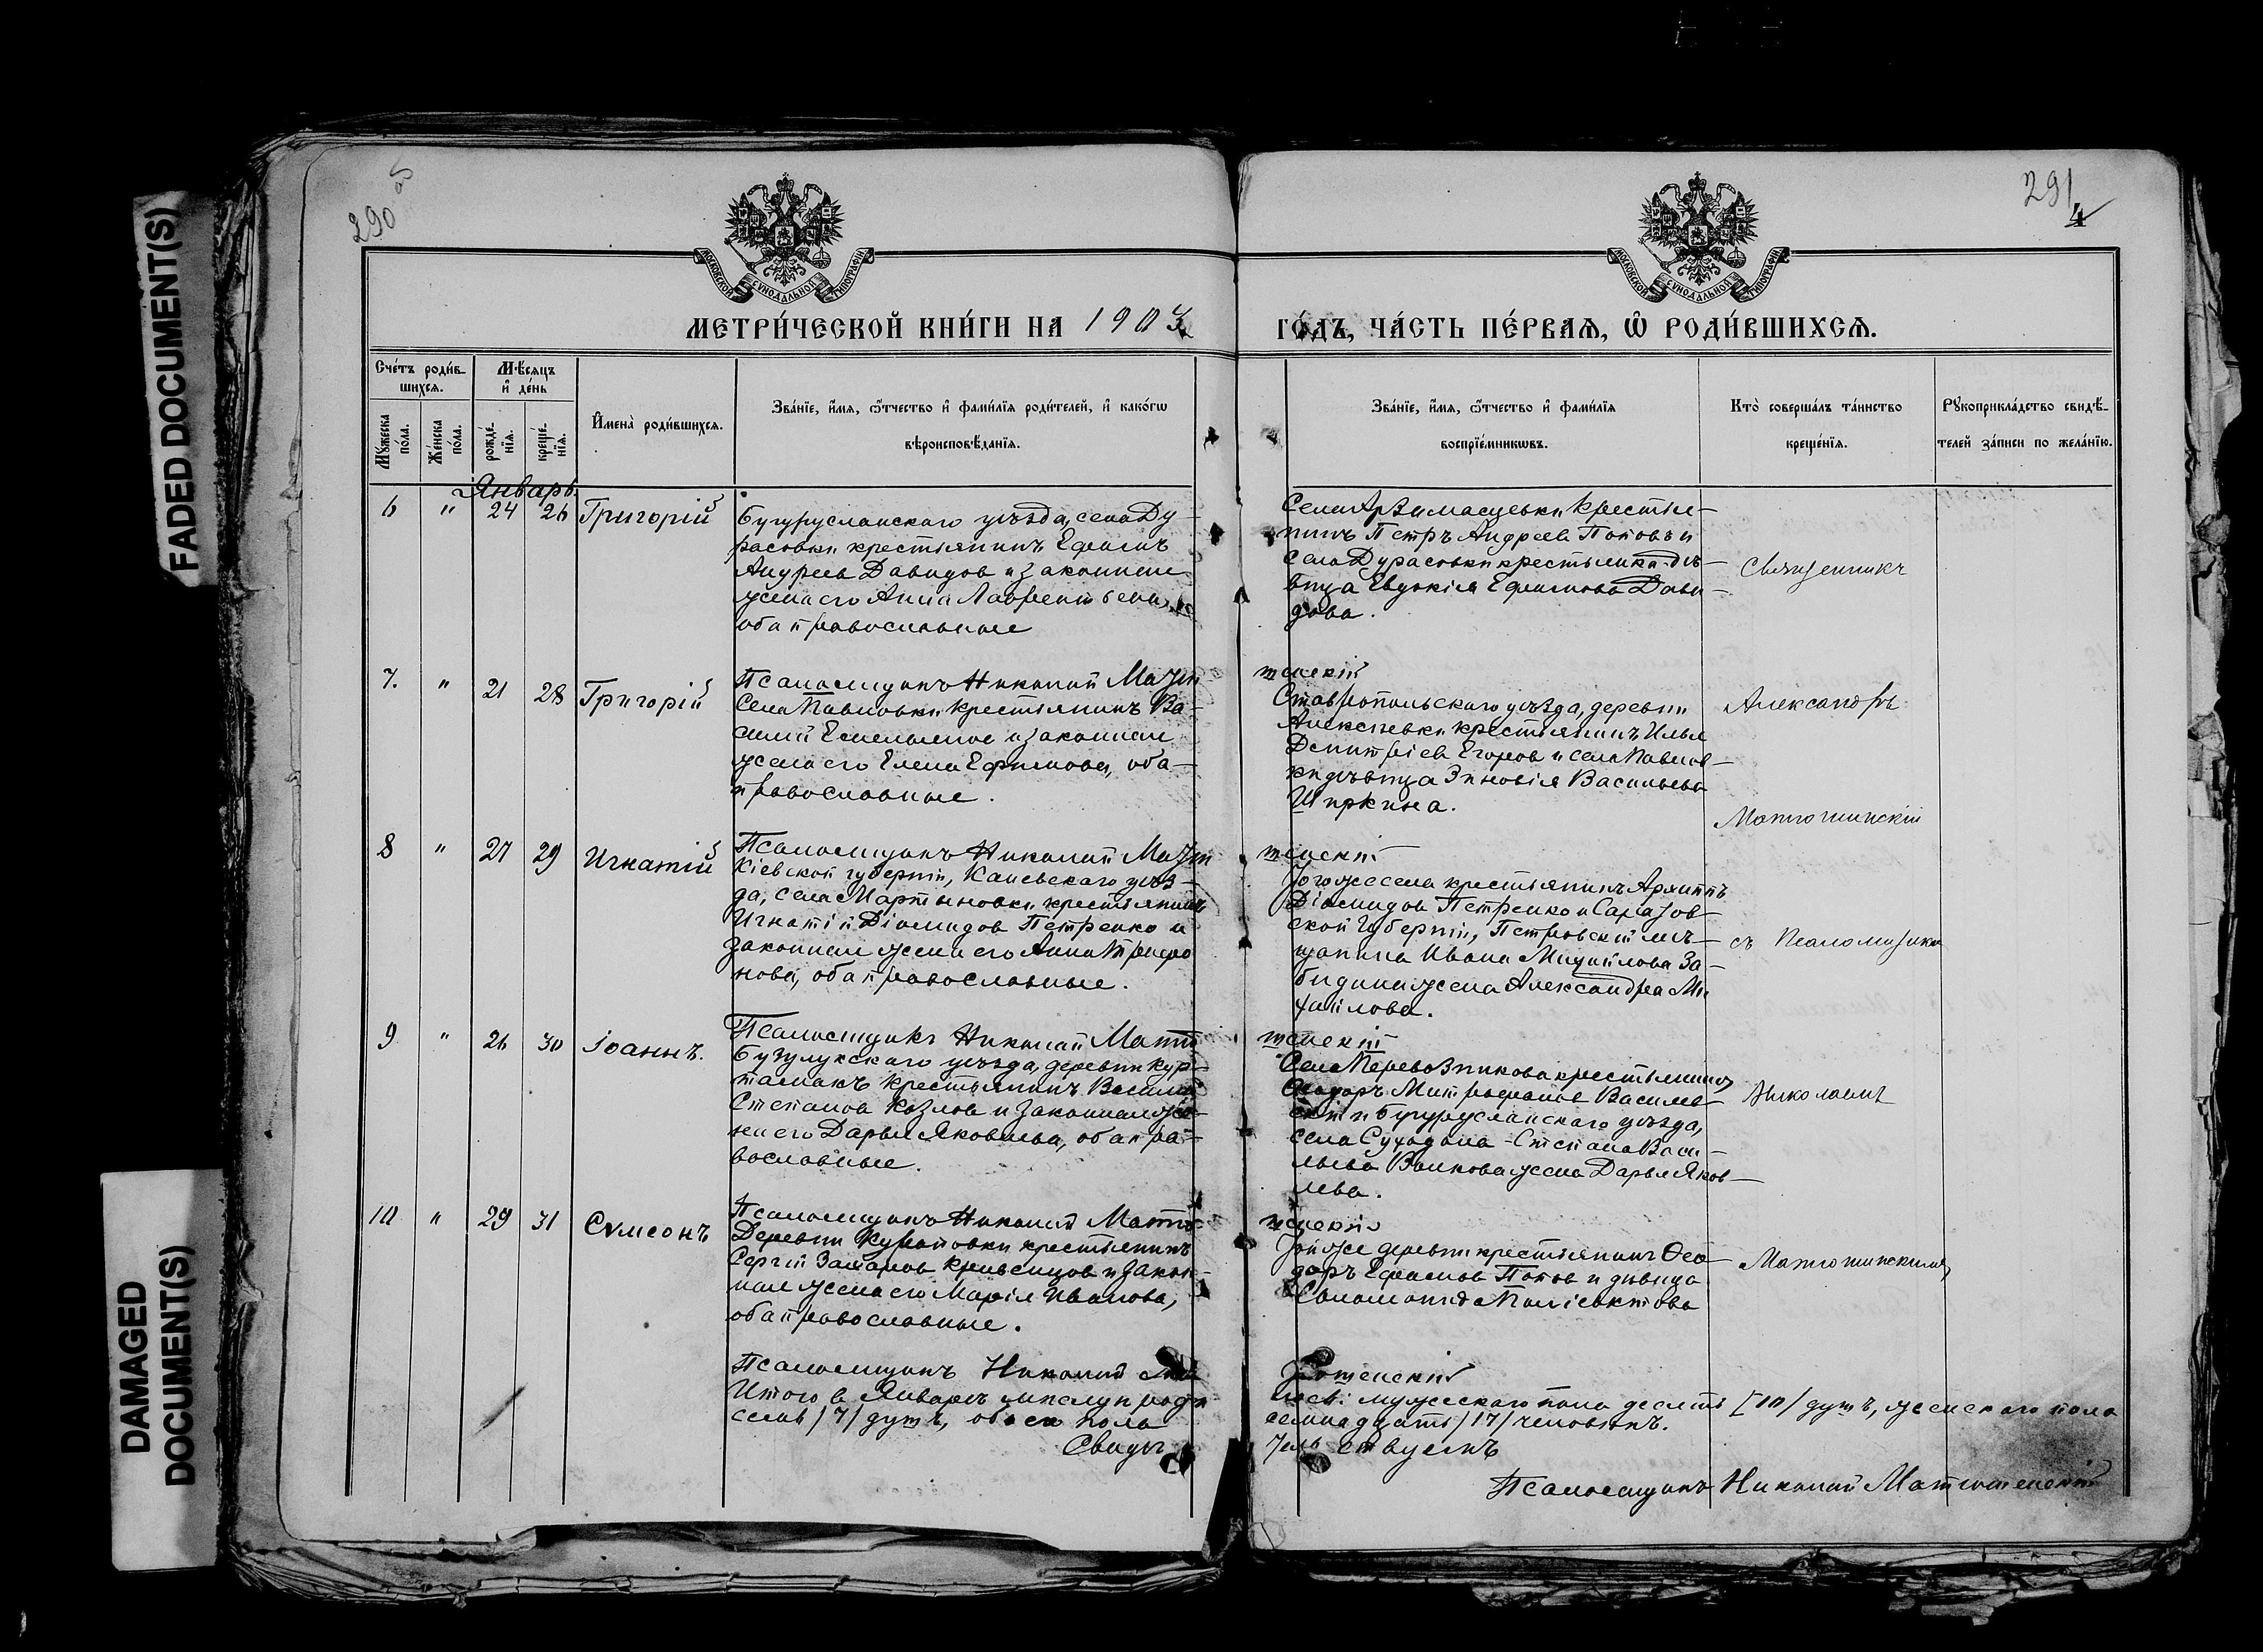 FADED DOCUMENT(S)
DAMAGED
DOCUMENT(S)
290 об
291
4
МОСКОВСКОЙ СѴНОДАЛЬНОЙ ТИПОГРАФІИ
МОСКОВСКОЙ СѴНОДАЛЬНОЙ ТИПОГРАФІИ
МЕТРИ́ЧЕСКОЙ КНИ́ГИ НА 1903
ГО́ДЪ, ЧА́СТЬ ПЕ́РВАЯ, Ѿ РОДИ́ВШИХСѦ.
Сче́тъ роди́в-
шихсѧ.
Мꙋ́жеска
по́ла.
Же́нска
по́ла.
Мѣ́сяцъ
и҆ де́нь
рожде́-
нїѧ.
креще́-
нїѧ.
И҆мена̀ роди́вшихсѧ.
Зва́нїе, и҆́мѧ, ѻ҆́тчество и҆ фами́лїѧ роди́телей, и҆ како́гѡ
вѣроисповѣ́данїѧ.
Зва́нїе, и҆́мѧ, ѻ҆́тчество и҆ фами́лїѧ
воспрїе́мникѡвъ.
Кто̀ соверша́лъ та́инство
креще́нїѧ.
Рꙋкоприкла́дство свидѣ́-
телей за́писи по жела́нїю.
Январь.
6 " 24 26 Григорій
Бугурусланскаго уѣзда, села Ду-
расовки крестьянинъ Ефимъ
Андреевъ Давидов и законная
жена его Анна Лаврентьева,
оба православные
Села Арзамасцевки крестья-
нинъ Петръ Андреевъ Поповъ и
села Дурасовки крестьянка-дѣ-
вица Евдокія Ефимова Дави-
дова.
Священникъ
Псаломщикъ Николай Матю
шенскій
7. " 21 28 Григорій
Села Павловки крестьянинъ Ва-
силий Емельянов и законная
жена его Елена Ефимова, оба
православные.
Ставропольскаго уѣзда, деревни
Алексѣевки крестьянинъ Илья
Дмитріев Егоров и села Павлов-
ки дѣвица Зиновія Васильева
Ширкина.
Александръ
Матюшинскій
Псаломщикъ Николай Матю
шенскій
8 " 27 29 Игнатій
Кіевской губерніи, Каневскаго уѣз-
да, села Мартыновки крестьянинъ
Игнатій Діомидов Петренко и
законная жена его Анна Трифо
нова, оба православные.
Того же села крестьянинъ Архиппъ
Діомидов Петренко и Саратов-
ской губерніи, Петровскій мѣ-
щанина Ивана Михайлова За-
бидина жена Александра Ми
хайлова.
съ Псаломщикомъ
Псаломщикъ Николай Матю
шенскій
9 " 26 30 Іоаннъ.
Бузулукскаго уѣзда, деревни Кур-
тамакъ крестьянинъ Василій
Степанов Козлов и законная же-
на его Дарья Яковлева, оба пра-
вославные.
Села Перевозникова крестьянинъ
Ѳеодоръ Митрофанов Василев-
скій и Бугурусланскаго уѣзда,
села Суходола - Степана Васи-
льева Волкова жена Дарья Яков-
лева.
Николаемъ
Псаломщикъ Николай Матю
шенскій
10 " 29 31 Сѵмеонъ
Деревни Куроповки крестьянинъ
Сергій Кривенцов и закон-
ная жена его Марія Иванова,
оба православные.
Той же деревни крестьянинъ Ѳео-
доръ Ефимов Попов и дѣвица
Соломонида Поліевктова
Матюшинскимъ
Псаломщикъ Николай Матю
шенскій
Итого в Январѣ мѣсяцѣ роди
лось: мужескаго пола десять /10/ душъ, женскаго пола
семь /7/ душъ, обоего пола
семнадцать /17/ человѣкъ.
Свидѣ
тельствуемъ
Псаломщикъ Николай Матюшенскій